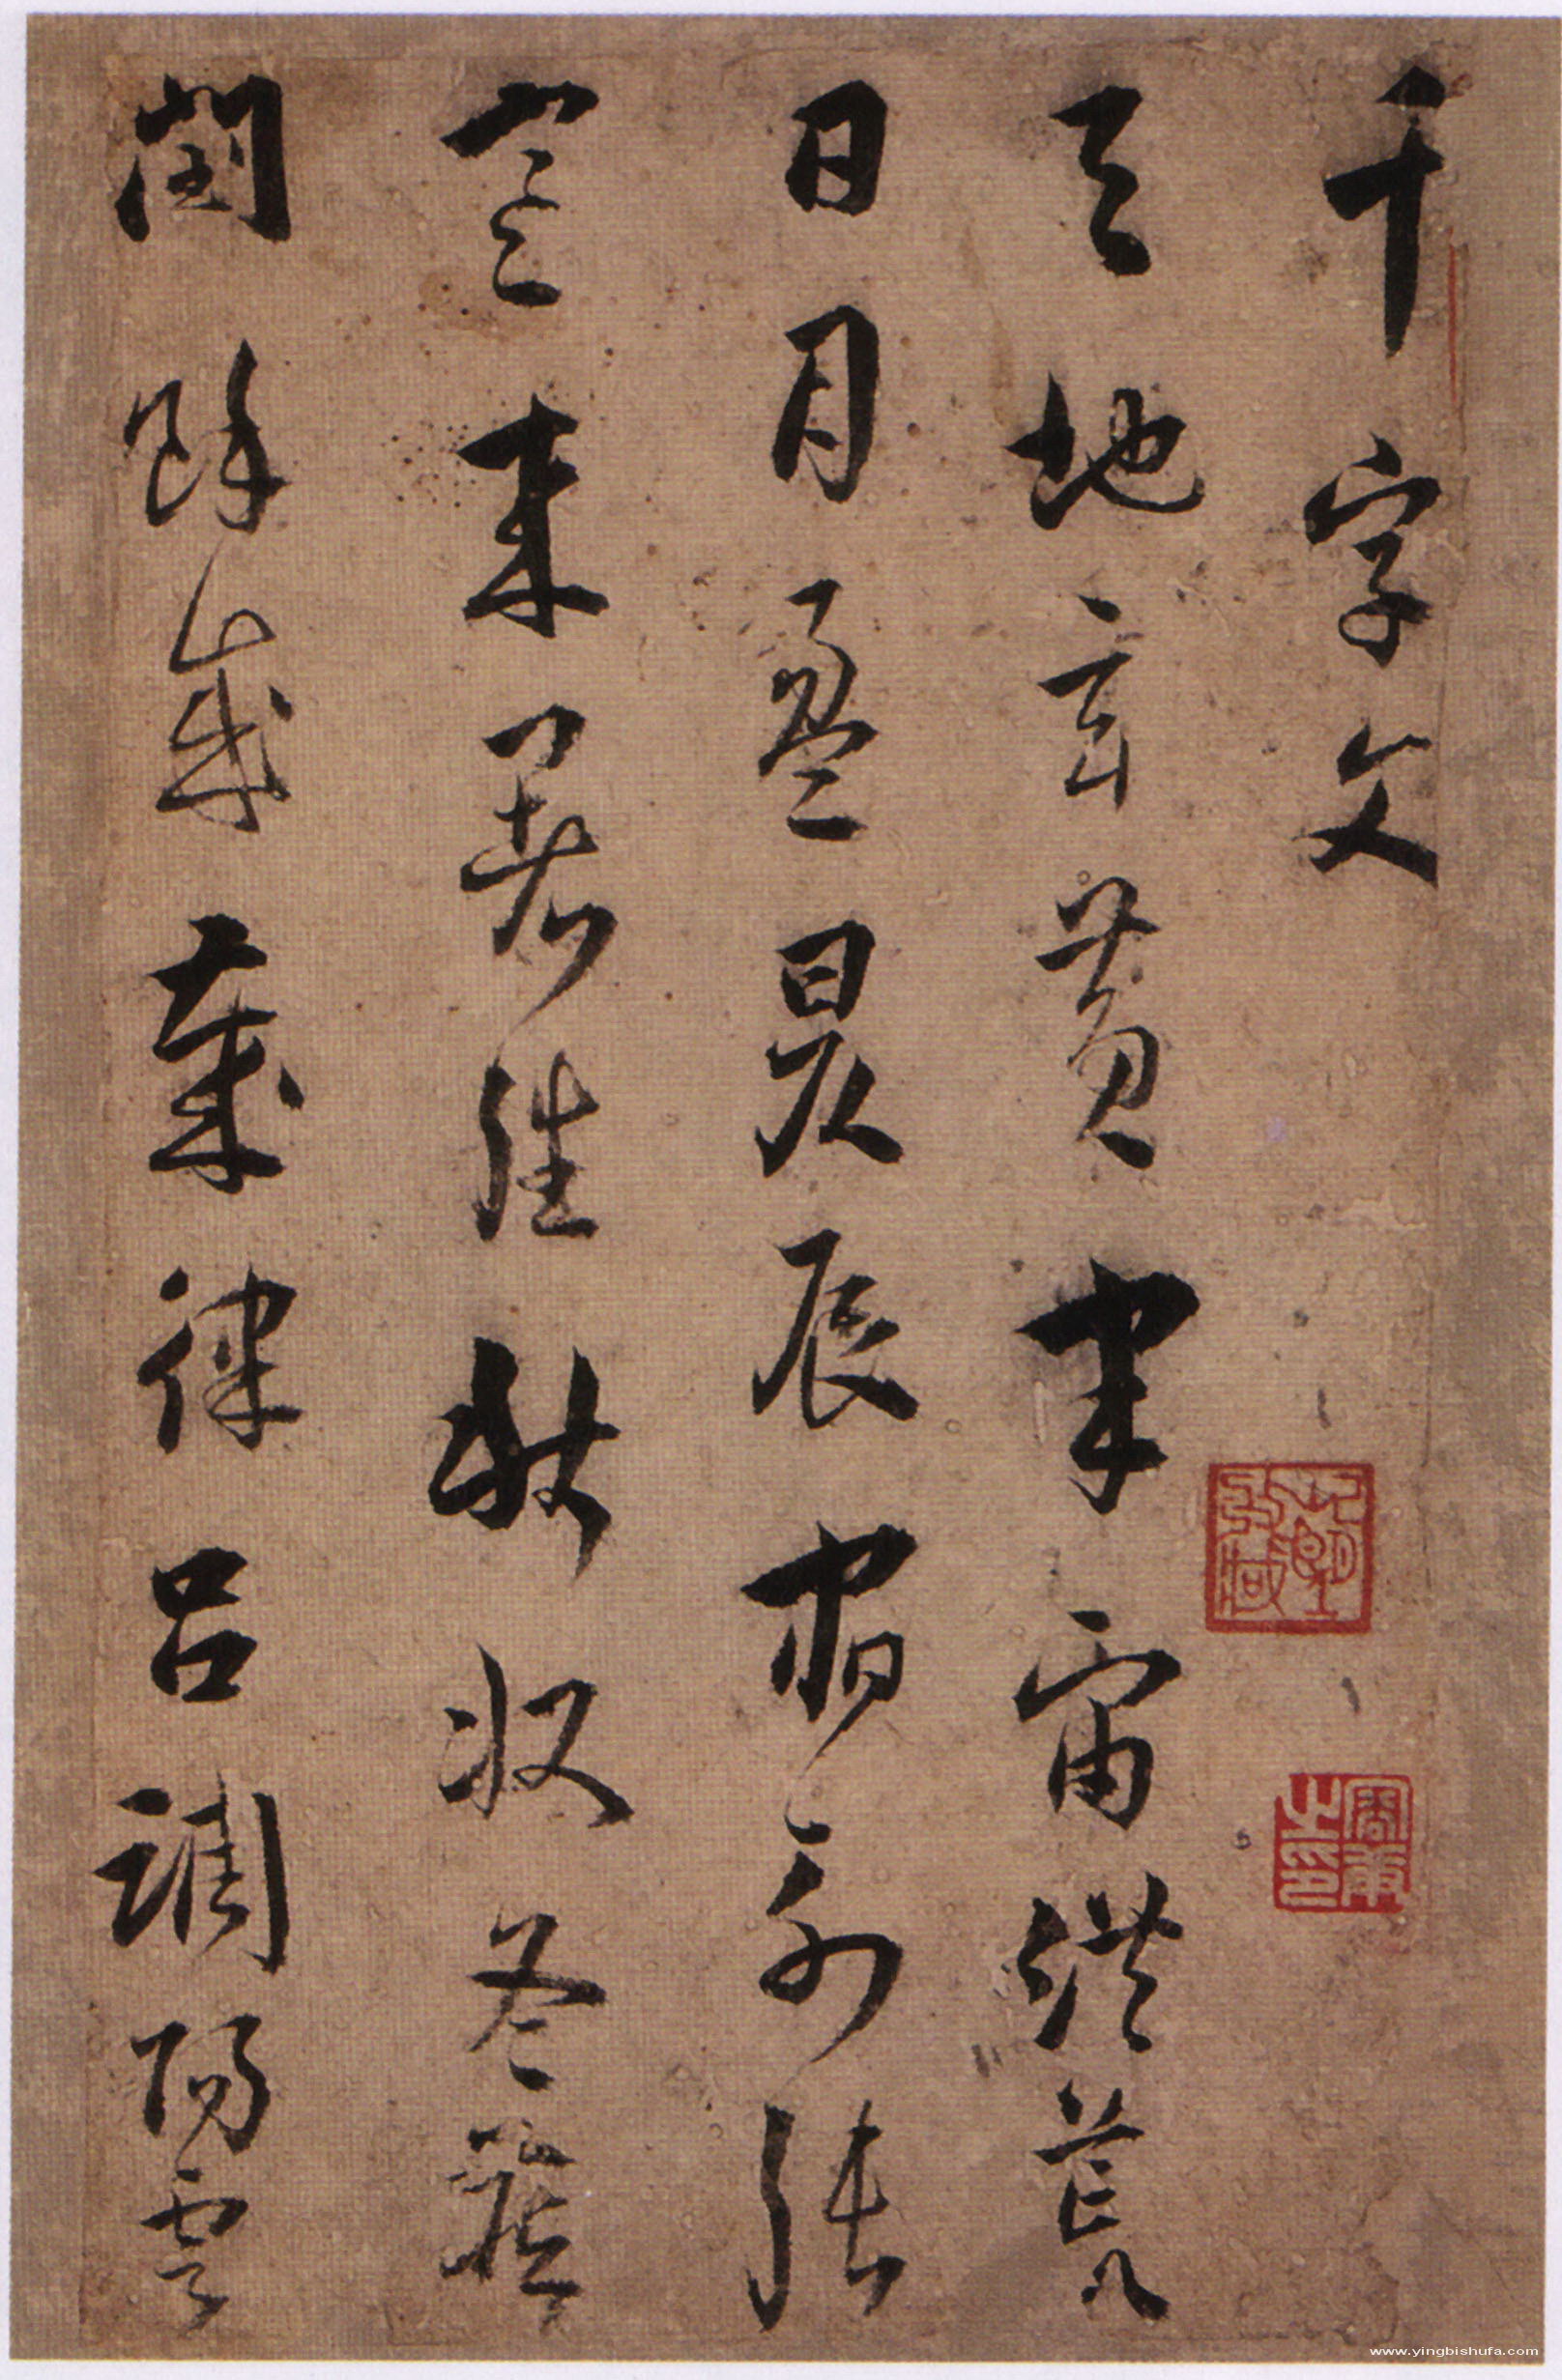 千字文
天地玄黄宇宙洪荒
日月盈昃辰宿列張
寒来暑往秋収冬藏
閏餘成歲律呂調陽雲
www.yingbishufa.com